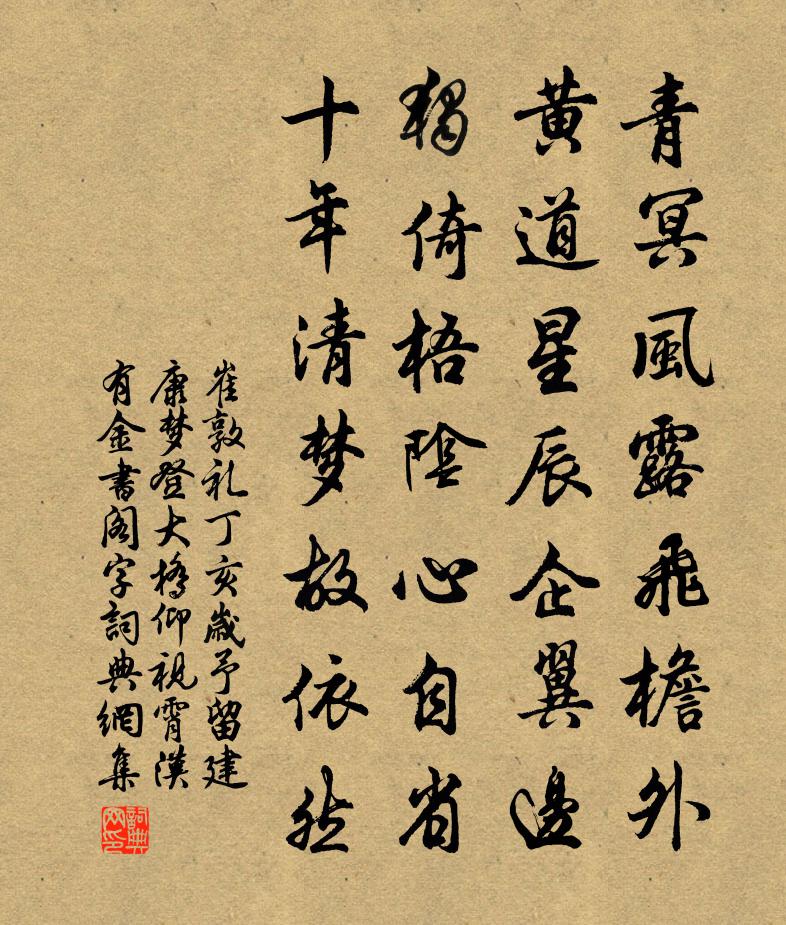 青冥風露飛檐外
黃道星辰企翼邊
獨倚梧陰心自省
十年清梦故依然
崔敦礼丁亥歲予留建
康梦登大橋仰視霄漢
有金書閣字詞典網集
詞典
网印